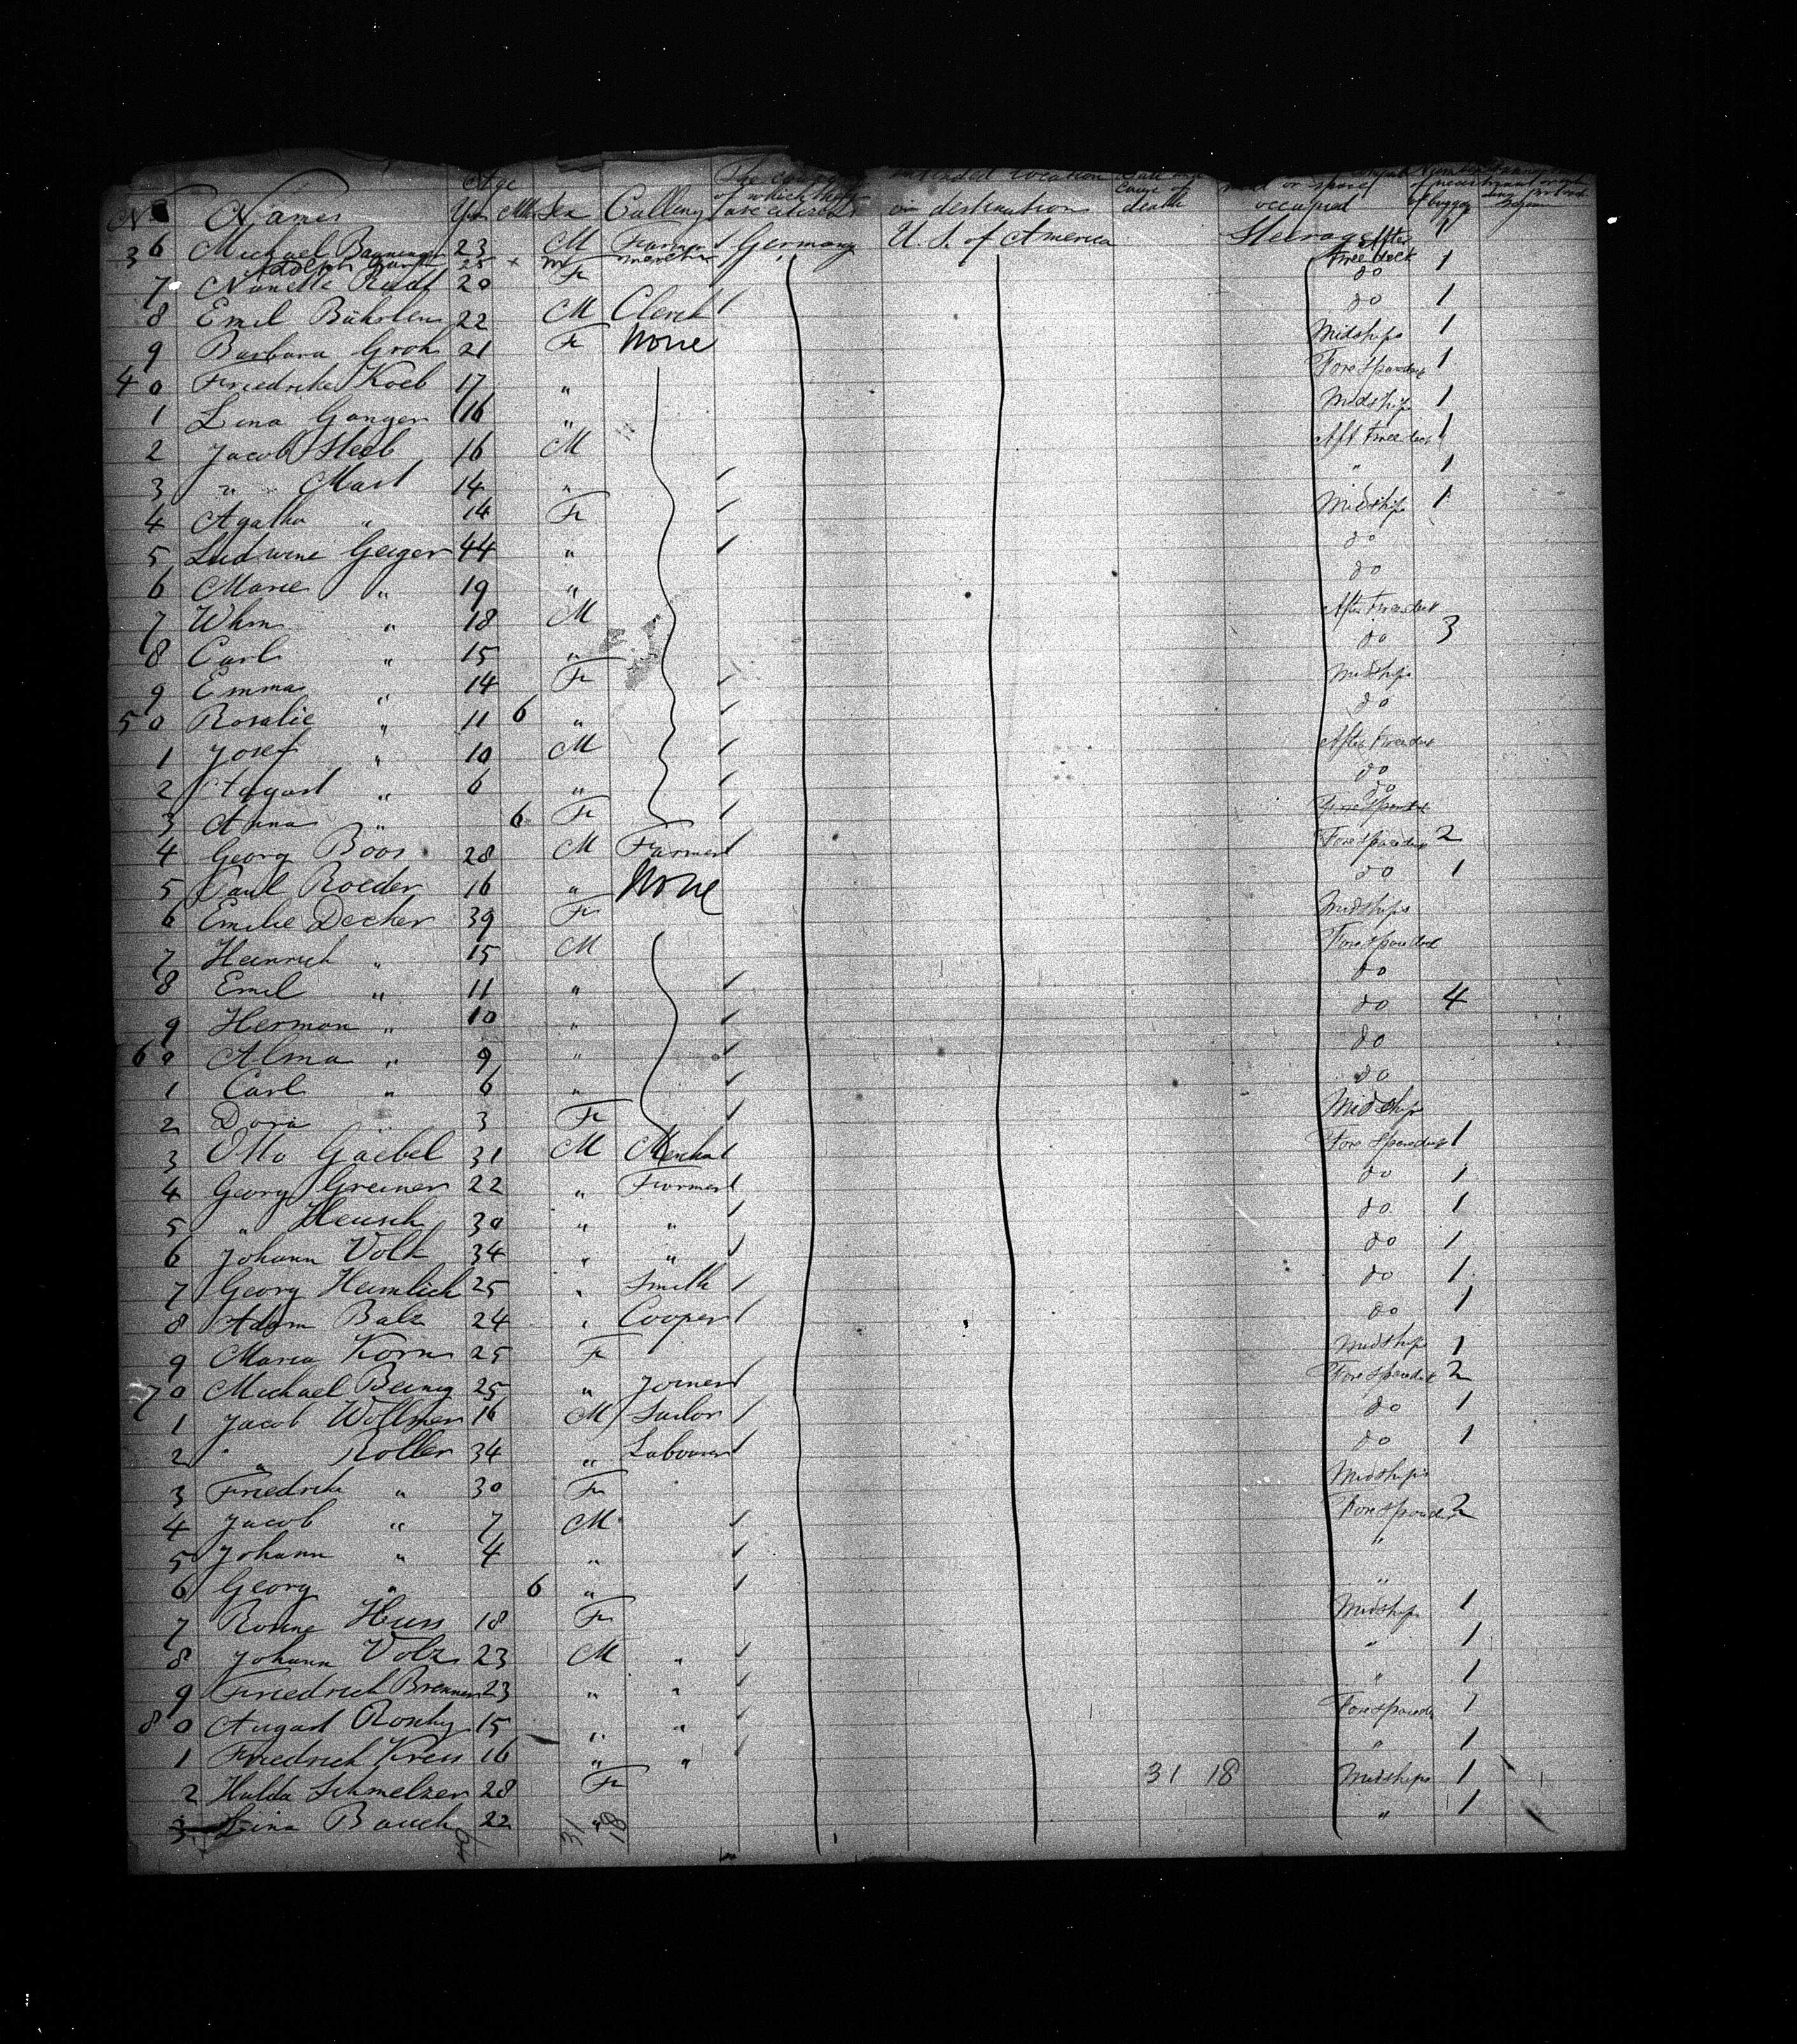 Age
No Names Yrs Mth Sex Calling of which they are citizens intended location or destination cause of death or space occupied of baggage
36 Michael 23 M Farmer Germany U. S. of America Steerage After 1
25 + m Free deck 1
7 Nanette 20 Fe do
8 Emil Bühlen 22 M Clerck do 1
9 Barbara Groh 21 Fe None Midships 1
40 Friedrike Koeb 17 " Fore Spardeck 1
1 Lina Ganger 16 " Midship 1
2 Jacob Steeb 16 M Aft Free deck 1
3 " Mast 14 " " 1
4 Agatha " 14 Fe Midship 1
5 Ludwine Geiger 44 " do
6 Marie " 19 " do
7 Whm " 18 M After Freedeck
8 Carl " 15 " do 3
9 Emma " 14 Fe Midship
50 Rosalie " 11 6 " do
1 Josef " 10 M After Freedeck
2 August " 6 " do
3 Anna " 6 Fe do
4 Georg Boos 28 M Farmer Fore spardeck 2
5 Paul Roeder 16 " None do 1
6 Emilie Decker 39 Fe Midships
7 Heinrich " 15 M Fore spardeck
8 Emil " 11 " do
9 Herman " 10 " do 4
60 Alma " 9 " do
1 Carl " 6 " do
2 Dora " 3 Fe Midship
3 Otto Gaebel 31 M Merchant Fore Spardeck 1
4 Georg Greiner 22 " Farmer do 1
5 " Heusch 30 " " do 1
6 Johann Volk 34 " " do 1
7 Georg Heimlich 25 " Smith do 1
8 Adam Balz 24 " Cooper do 1
9 Maria Korn 25 Fe Midship 1
70 Michael Beinig 25 " Joiner Fore spardeck 2
1 Jacob Wollmer 16 M Tailor do 1
2 " Roller 34 " Labourer do 1
3 Friedrike " 30 Fe Midships
4 Jacob " 7 M Fore spardeck 2
5 Johann " 4 " "
6 Georg " 6 " "
7 Rosine Huss 18 Fe Midship 1
8 Johann Volz 23 M " " 1
9 Friedrich Brenner 23 " " " 1
80 August 15 " " Fore spardeck 1
1 Friedrich Kress 16 " " " 1
2 Hulda Schmelzer 28 Fe 31 18 Midships 1
3 Lina Bauch 22 " " 1
31 18